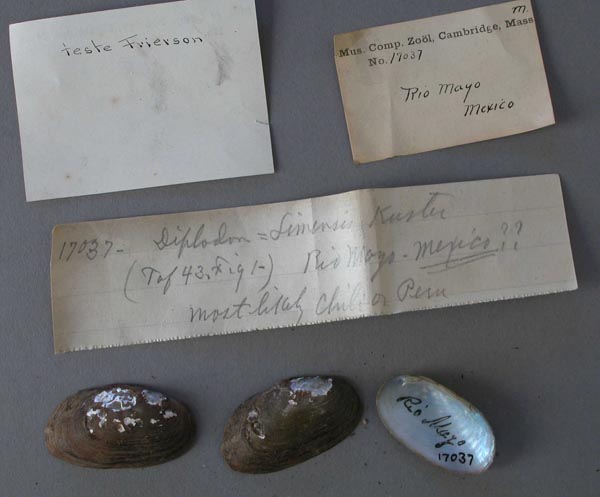 teste Frierson
m.
Mus. Comp. Zoöl, Cambridge, Mass
No. 17037
Rio Mayo
Mexico
17037- Diplodon = Limensis Kuster
(Taf 43. Fig 1-) Rio Mayo - Mexico??
most likely Chili or Peru
Rio Mayo
17037